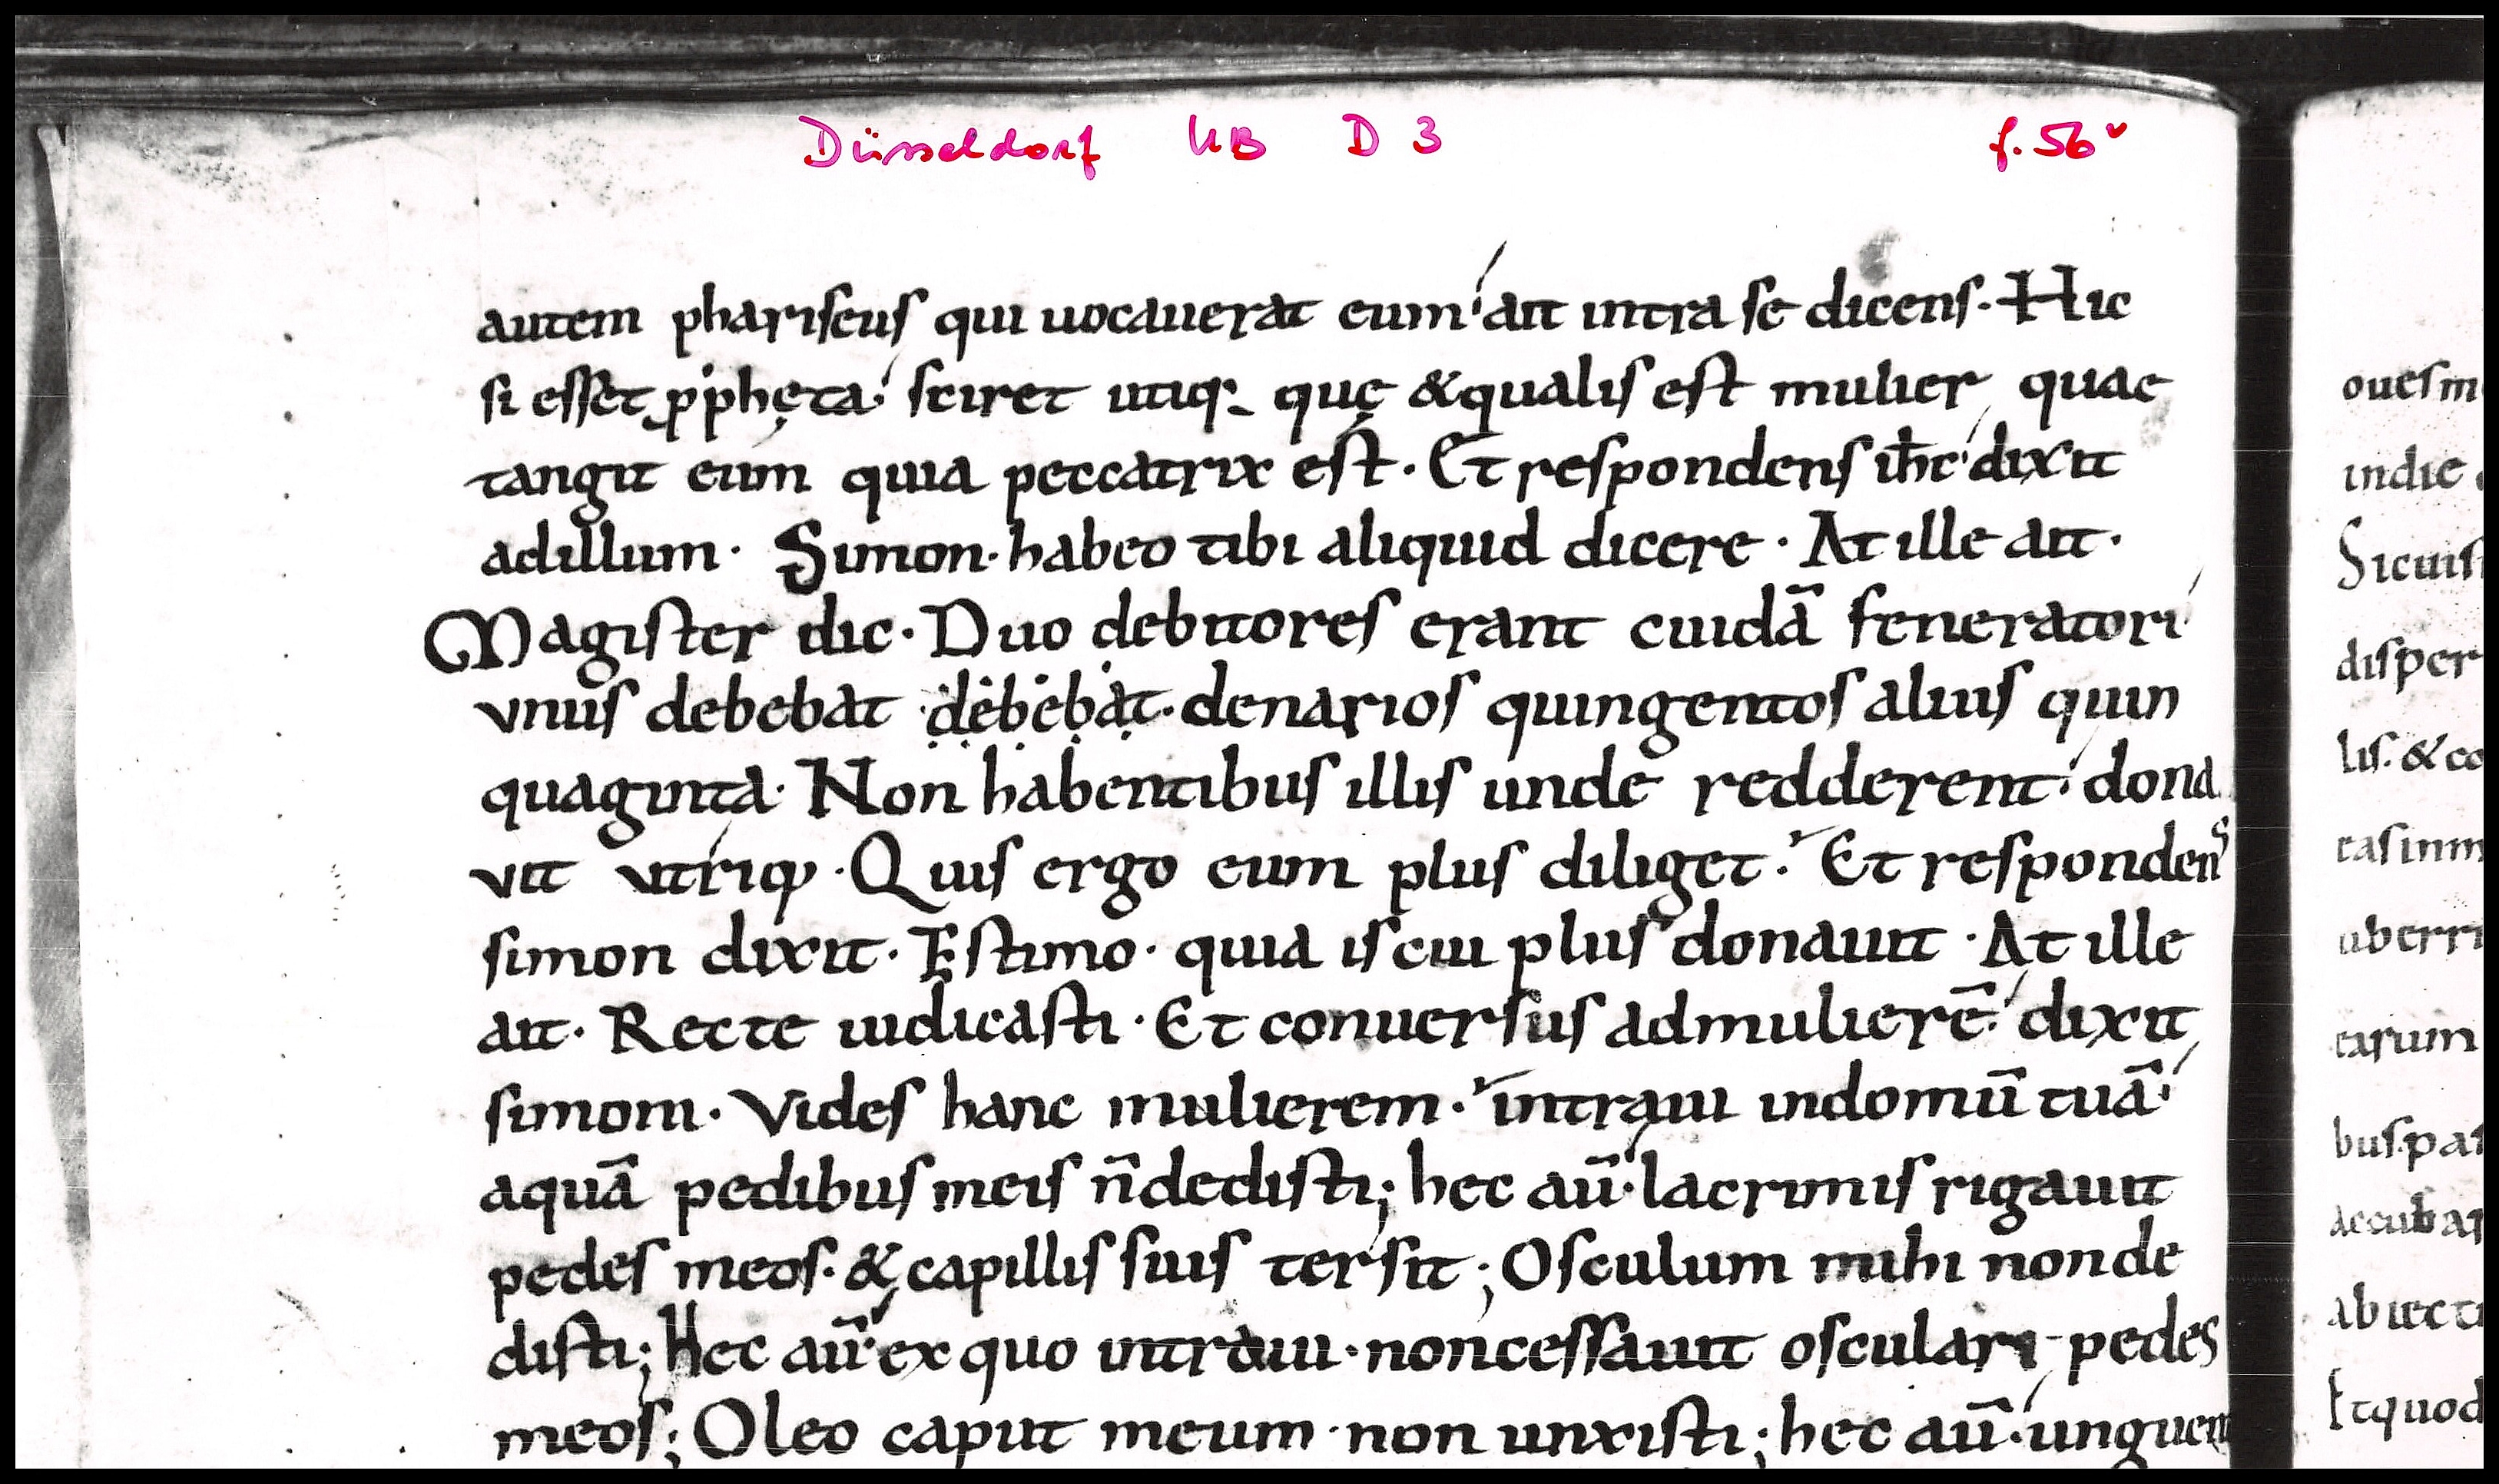 Düsseldorf UB D 3 f. 56v
autem phariseus qui uocauerat eum ait intra se dicens. Hic
si esset pphęta sciret utiq; quę & qualis est mulier quae
tangit eum quia peccatrix est. Et respondens ihc dixit
ad illum. Simon. habeo tibi aliquid dicere. At ille ait.
Magister dic. Duo debitores erant cuidā feneratori
vnus debebat debebat. denarios quingentos alius quin
quaginta. Non habentibus illis unde redderent dona
vit vtriq; . Quis ergo eum plus diliget? Et respondens
simon dixit. Ęstimo. quia is cui plus donauit. At ille
ait. Recte iudicasti. Et conuersus ad mulierē dixit
simoni. Vides hanc mulierem? intraui in domū tuā
aquā pedibus meis n̄ dedisti; hec aū lacrimis rigauit
pedes meos. & capillis suis tersit; Osculum mihi non de
disti; Hec aū ex quo intraui. non cessauit osculari pedes
meos; Oleo caput meum. non unxisti; hec aū. unguen
oues m
in die
Sicuis
disper
lis. & co
cas in m
uberri
earum
bus. pas
accubar
abiecti
Et quod